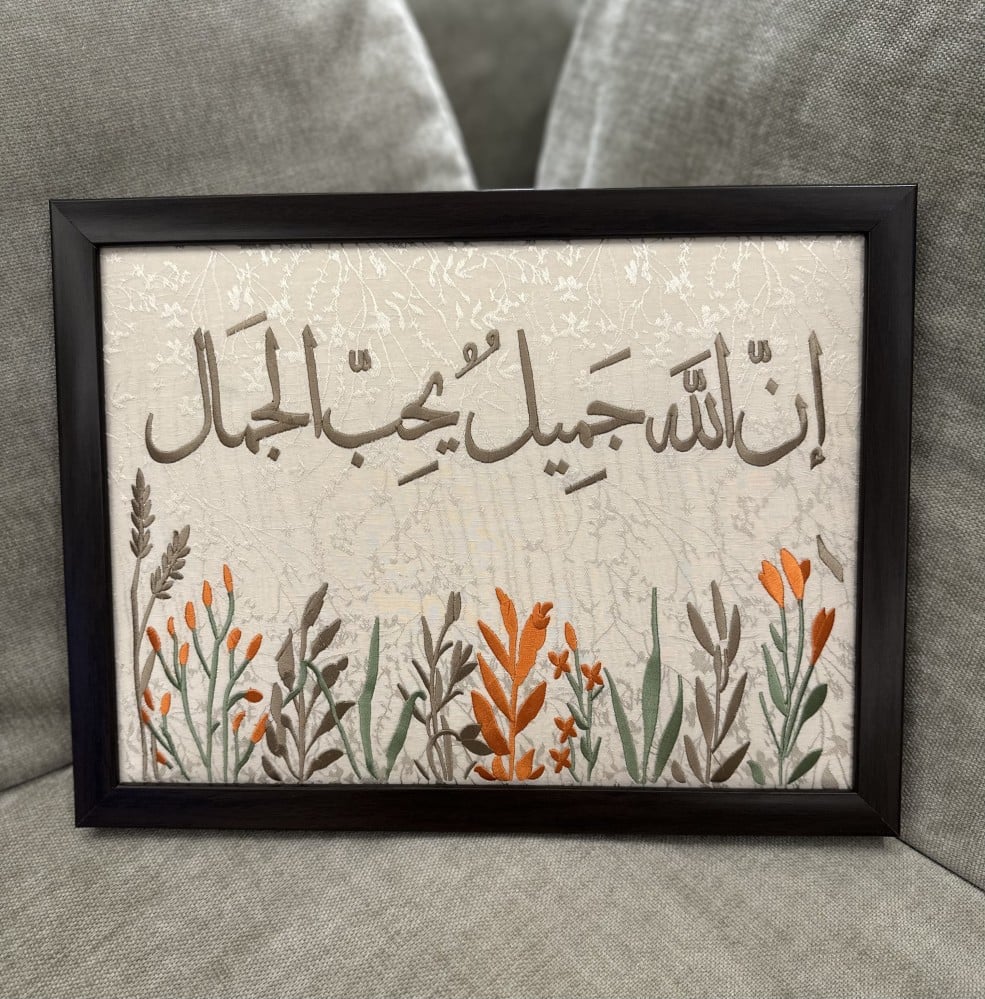 إنّ اللّٰه جَمِيلٌ يُحِبّ الجَمَال